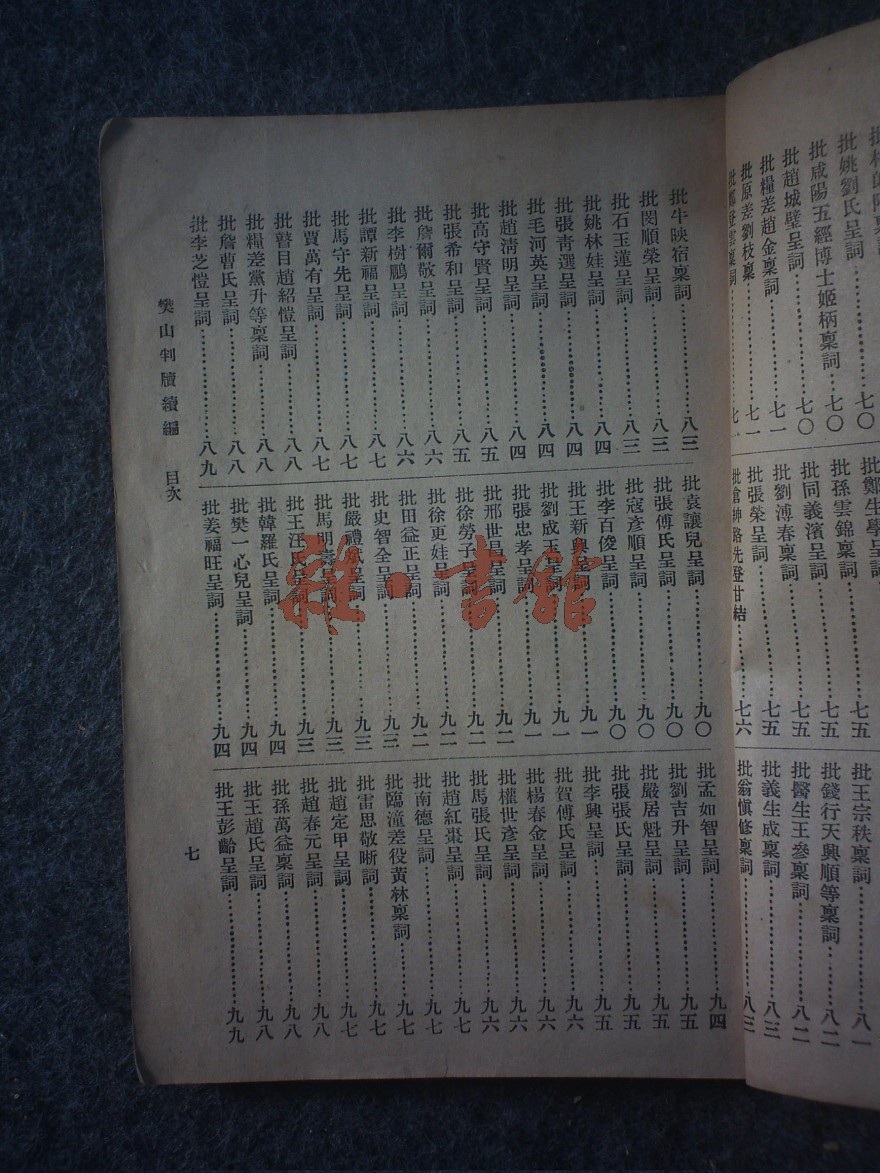 批姚劉氏呈詞
批咸陽五經博士姬柄稟詞……七〇
批趙城璧呈詞……七〇
批糧差趙金稟詞……七一
批原差劉枝稟……七一
批鄭登雲稟詞……七一
批鄭生學呈詞……七五
批孫雲錦稟詞……七五
批同義濱呈詞……七五
批劉溥春稟詞……七五
批張榮呈詞……七五
批倉紳路先登甘結……七六
批王宗秩稟詞……八一
批錢行天興順等稟詞……八二
批醫生王參稟詞……八二
批義生成稟詞……八二
批翁慎修稟詞……八三
批牛映宿稟詞……八三
批閔順榮呈詞……八三
批石玉蓮呈詞……八三
批姚林娃呈詞……八四
批張青選呈詞……八四
批毛河英呈詞……八四
批趙清明呈詞……八四
批高守賢呈詞……八五
批張希和呈詞……八五
批詹爾敬呈詞……八六
批李樹鵬呈詞……八六
批譚新福呈詞……八七
批馬守先呈詞……八七
批賈萬有呈詞……八七
批瞽目趙紹愷呈詞……八八
批糧差黨升等稟詞……八八
批詹曹氏呈詞……八八
批李芝愷呈詞……八九
批袁讓兒呈詞……九〇
批張傅氏呈詞……九〇
批寇彥順呈詞……九〇
批李百俊呈詞……九〇
批王新興呈詞……九一
批劉成玉呈詞……九一
批張忠孝呈詞……九一
批邢世昌呈詞……九二
批徐勞子呈詞……九二
批徐更娃呈詞……九二
批田益正呈詞……九二
批史智全呈詞……九三
批嚴禮獻呈詞……九三
批馬明壽呈詞……九三
批王汪氏呈詞……九三
批韓羅氏呈詞……九四
批樊一心兒呈詞……九四
批姜福旺呈詞……九四
批孟如智呈詞……九四
批劉吉升呈詞……九五
批嚴居魁呈詞……九五
批張張氏呈詞……九五
批李興呈詞……九五
批賀傅氏呈詞……九六
批楊春金呈詞……九六
批權世彥呈詞……九六
批馬張氏呈詞……九六
批趙紅棗呈詞……九七
批南德呈詞……九七
批臨潼差役黃林稟詞……九七
批雷思敬晰呈詞……九七
批趙定甲呈詞……九七
批趙春元呈詞……九八
批孫萬益稟詞……九八
批王趙氏呈詞……九八
批王彭齡呈詞……九九
樊山判牘續編　目次
七
雜·書館